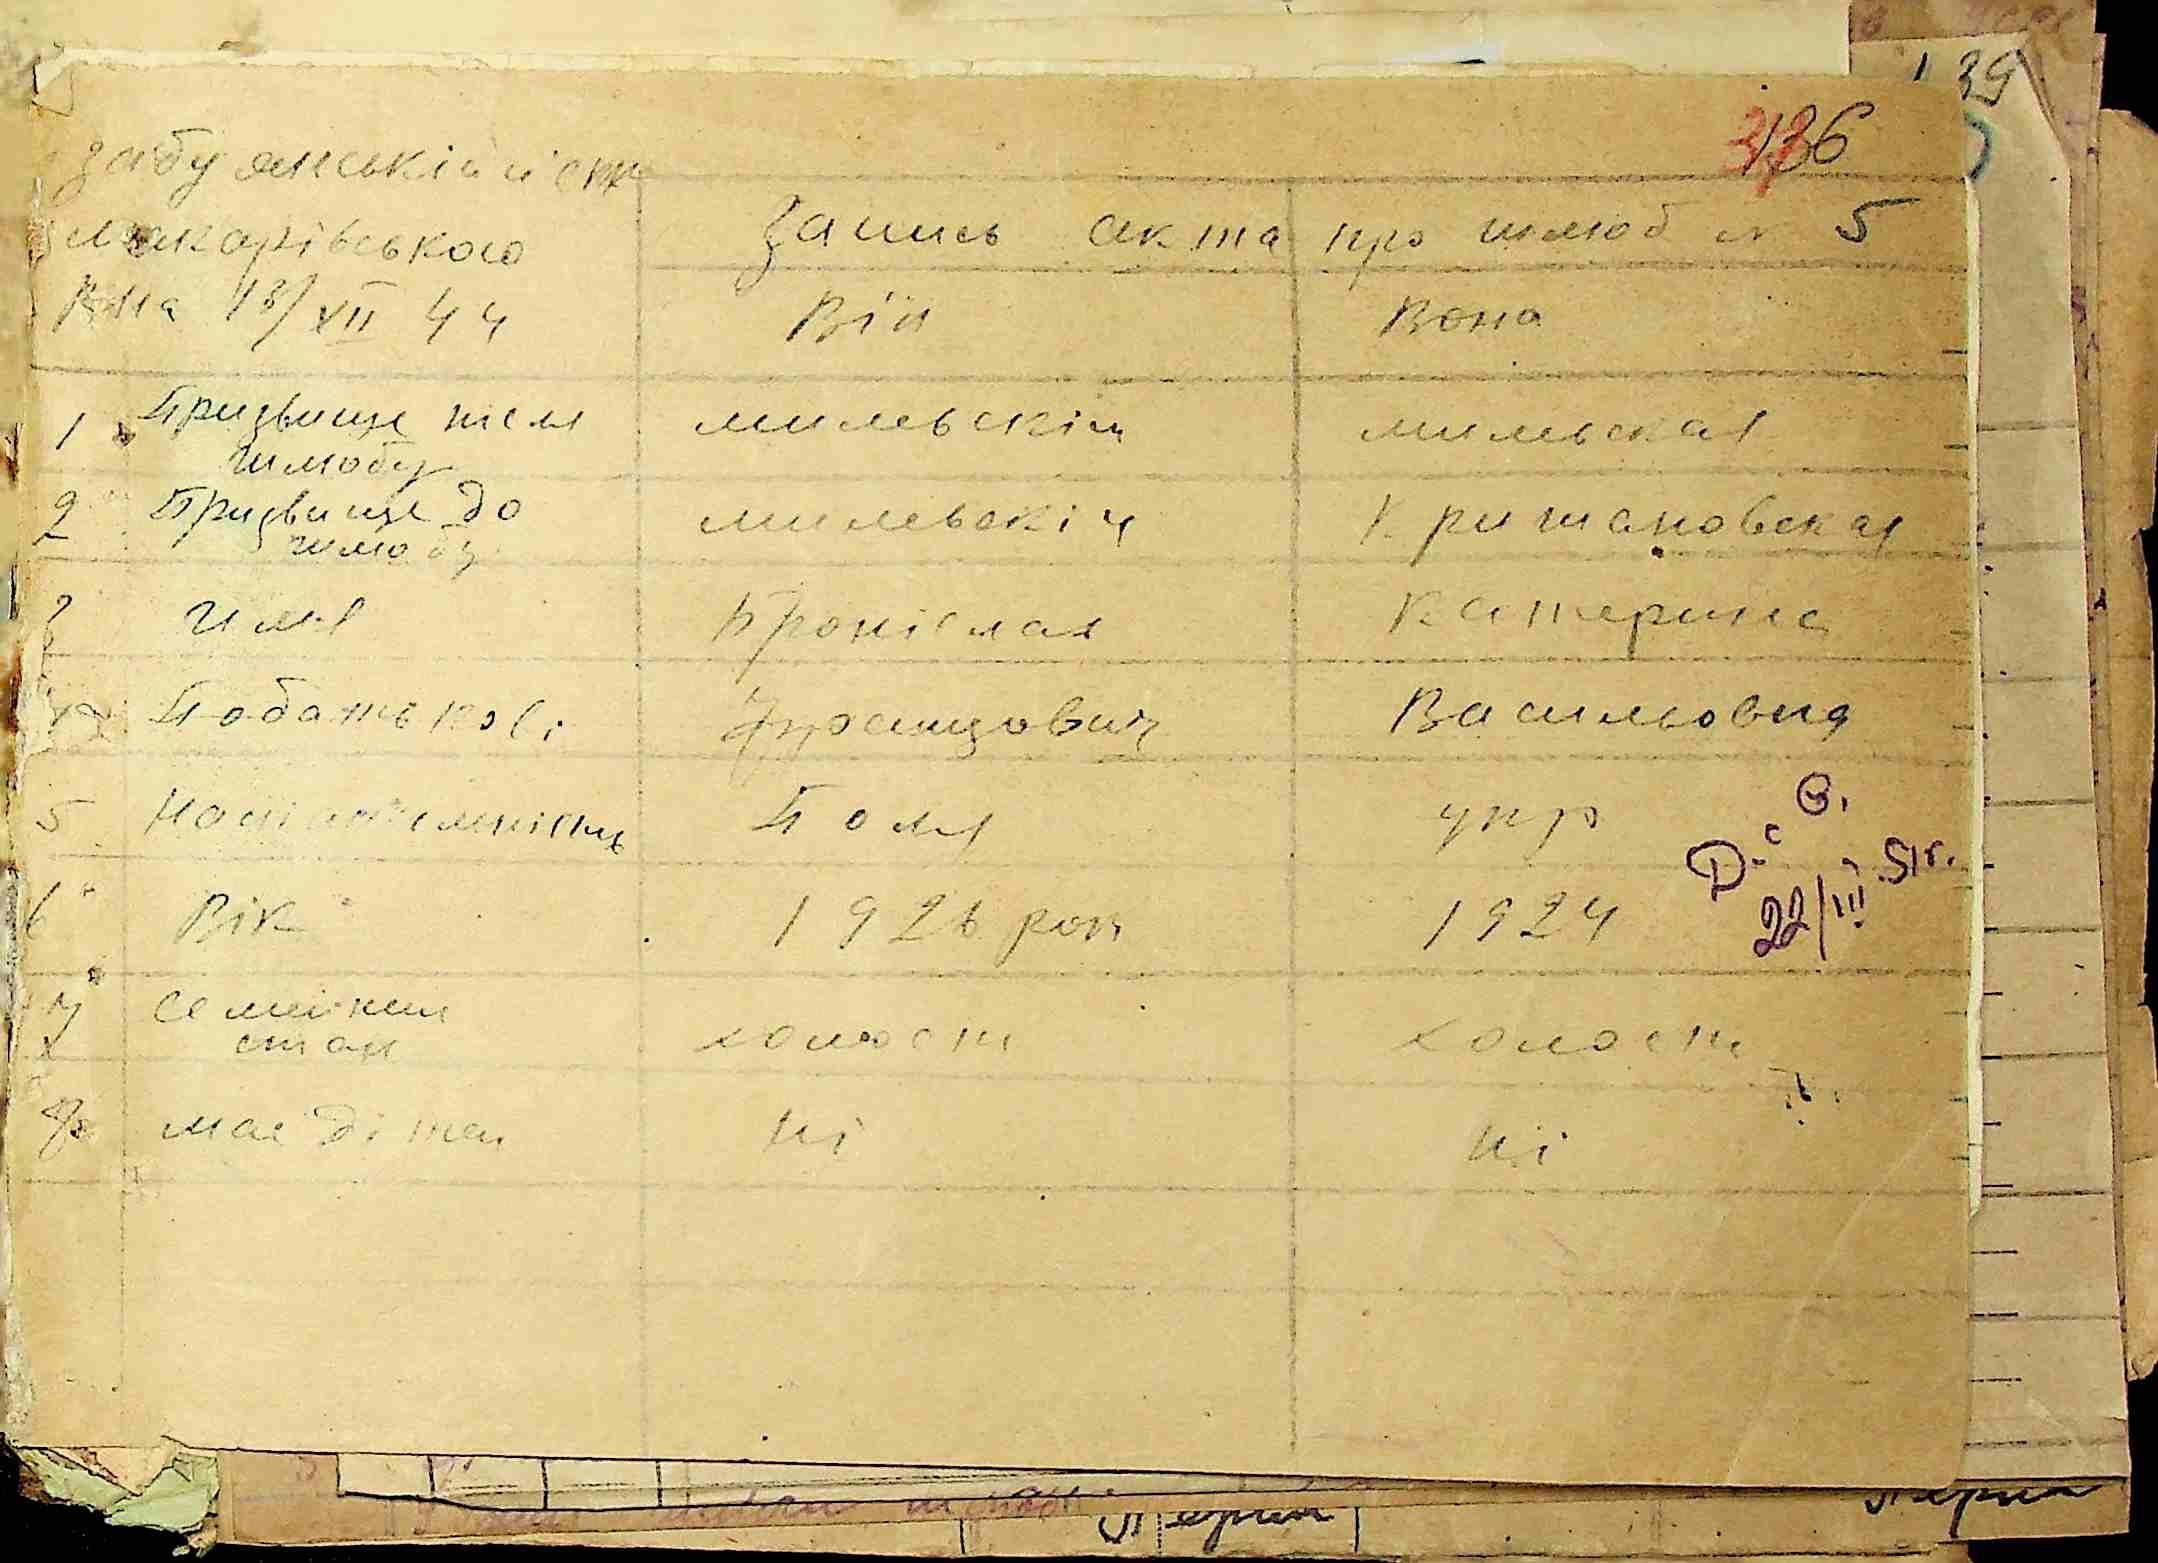 136
Забуянській
Макарівського
Запись акта про шлюб № 5
13/XII 44
Він Вона
1 Призвище після шлюбу Милевскій Милевская
2 Призвище до шлюбу Милевскій Кришановская
3 Имя Броніслав Катерина
4 Побатькові Францович Васильовна
5 Націанальність Поляк укр
6 Вік 1926 рок 1924
7 Семейний стан холост холост
8 має дітей ні ні
22/III 51 г.
39